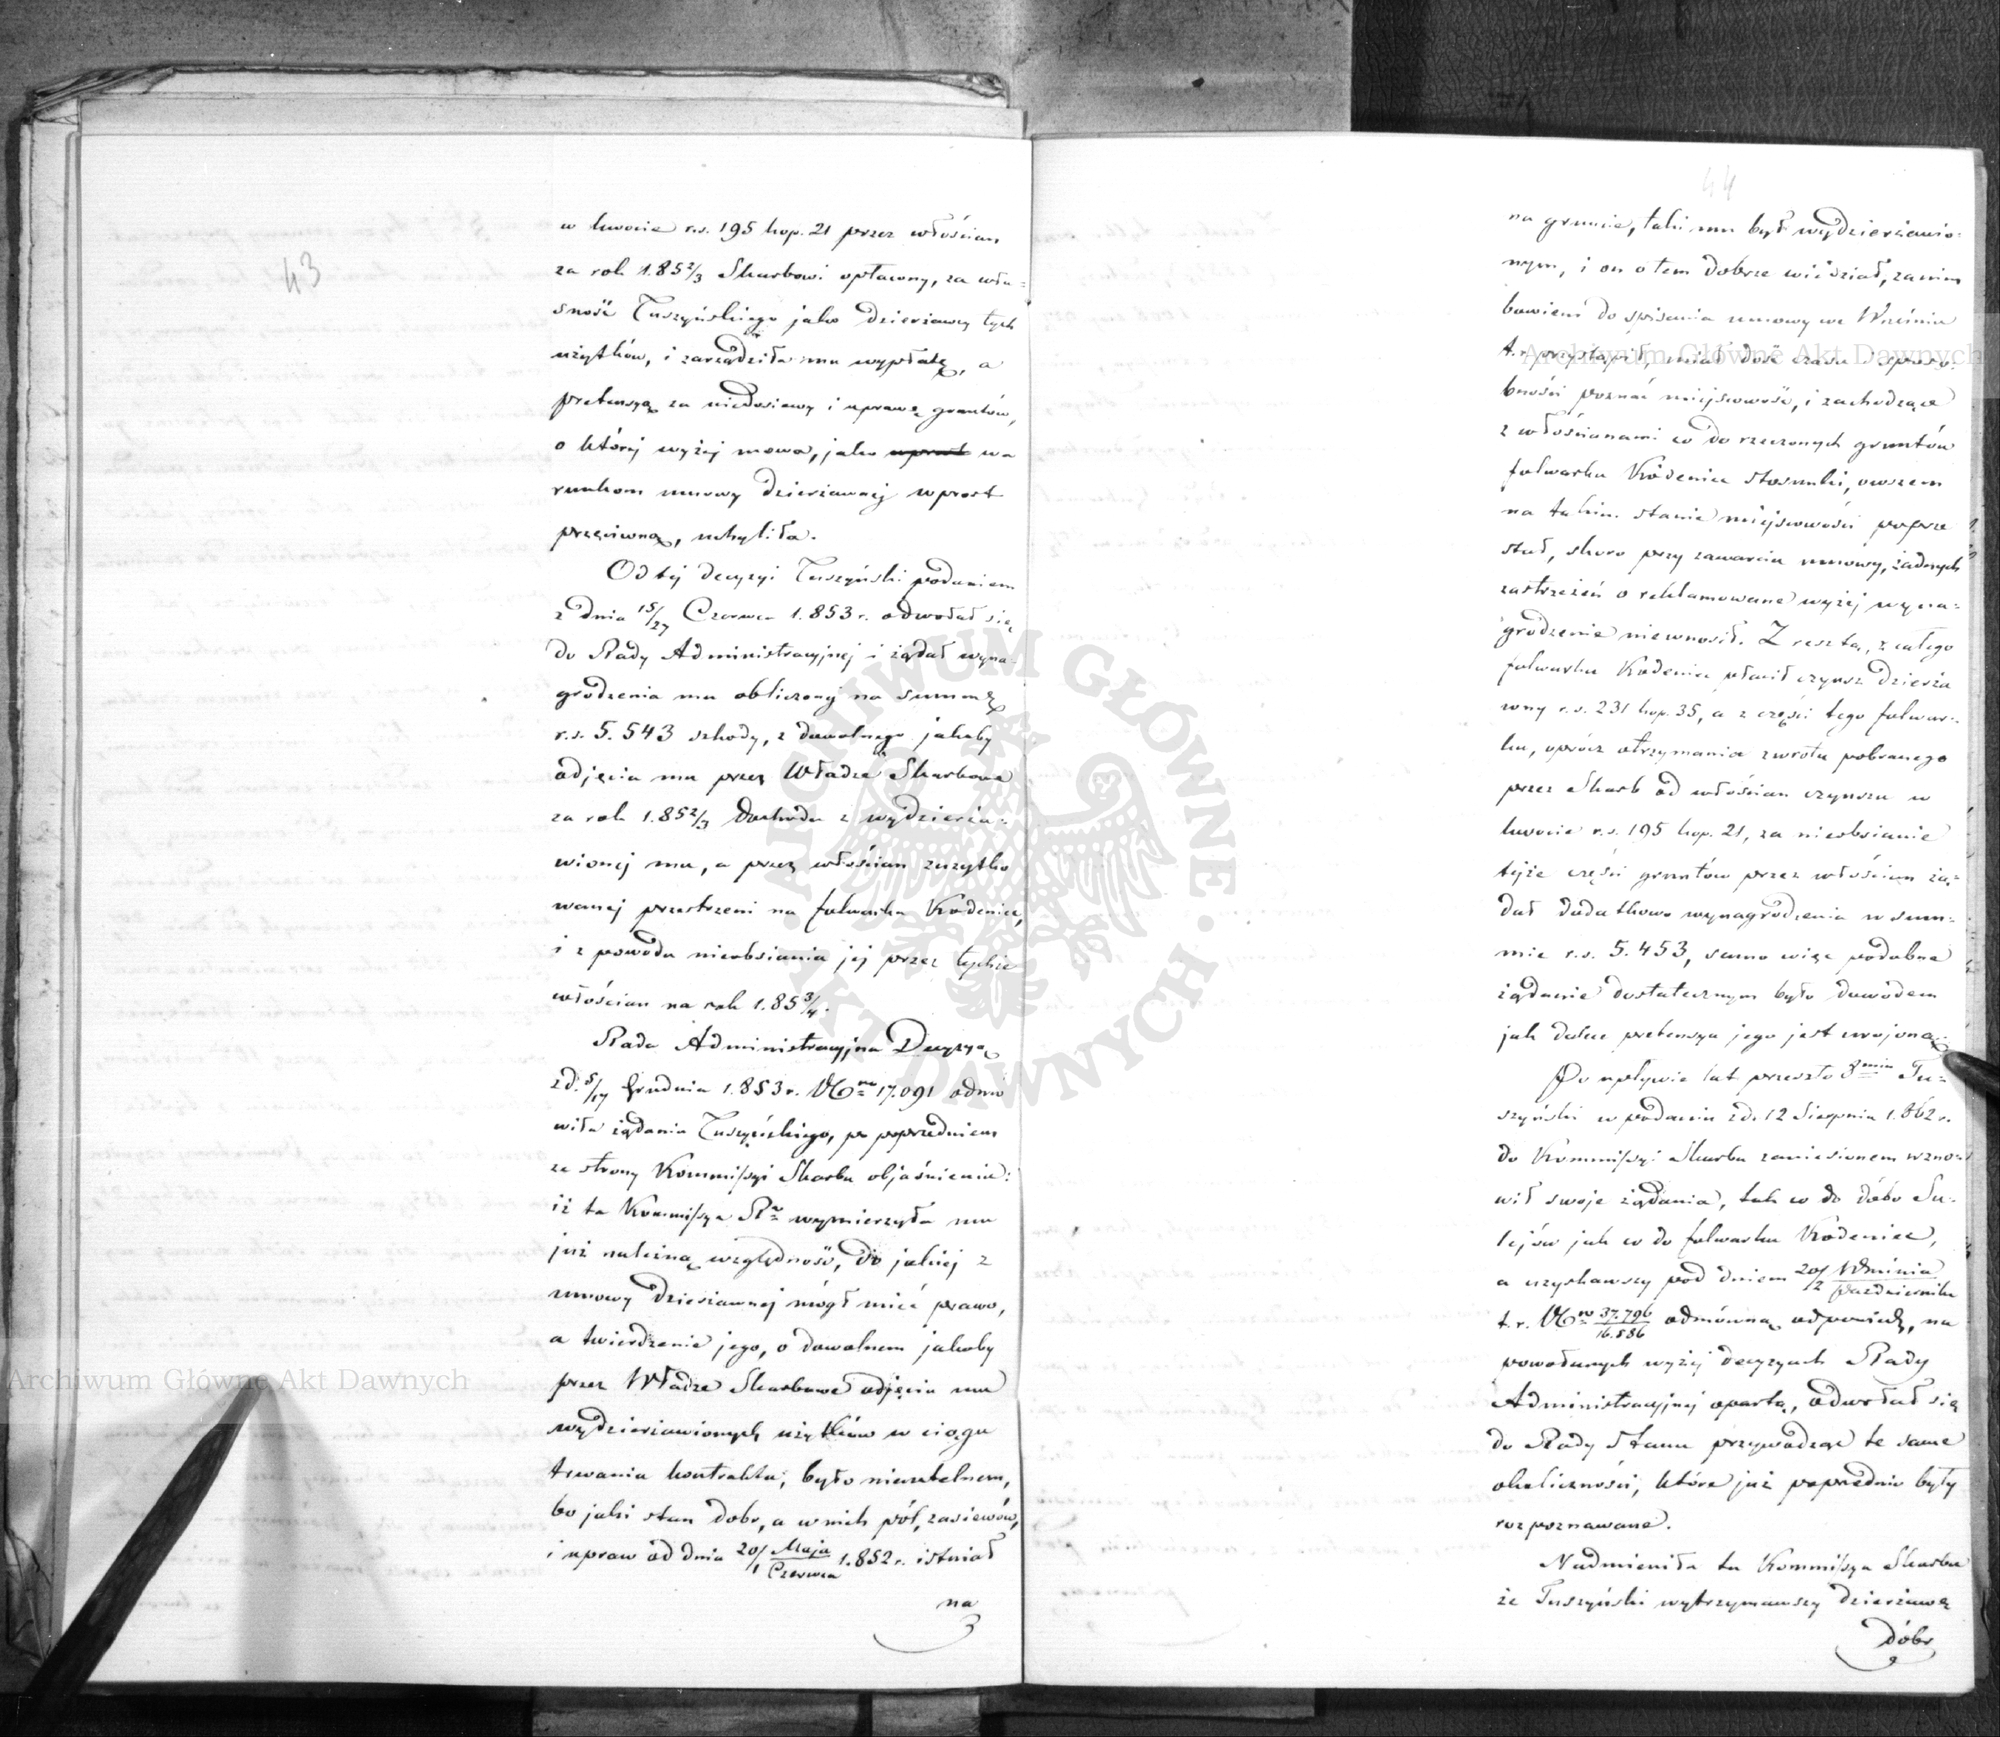 43
w kwocie r.s. 195 kop. 21 przez włościan
za rok 1.85 2/3 Skarbowi opłacony, za wła-
sność Tuszyńskiego jako dzierżawcy tych
użytków, i zarządziła mu wypłatę, a
pretensyą za niedosiewy i uprawę gruntów,
o której wyżej mowa, jako wa
runkom umowy dzierżawnej wprost
przeciwną, uchyliła.
Od tej decyzyi Tuszyński podaniem
z dnia 15/27 Czerwca 1.853 r. odwołał się
do Rady Administracyjnej i żądał wyna-
grodzenia mu obliczonej na summę
r.s. 5.543 szkody, z dowolnego jakoby
odjęcia mu przez Władze Skarbowe
za rok 1.85 2/3 dochodu z wydzierża-
wionej mu, a przez włościan zużytko
wanej przestrzeni na folwarku Kodeniec,
i z powodu nieobsiania jej przez tychże
włościan na rok 1.85 3/4.
Rada Administracyjna Decyzyą
z d. 5/17 Grudnia 1.853 r. No 17.091 odmó
wiła żądania Tuszyńskiego, po poprzedniem
ze strony Kommissyi Skarbu objaśnieniu:
iż ta Kommissya Rwa wymierzyła mu
już należną względność, do jakiej z
umowy dzierżawnej mógł mieć prawo,
a twierdzenie jego, o dowolnem jakoby
przez Władze Skarbowe odjęciu mu
wydzierżawionych użytków w ciągu
trwania kontraktu, było nierzetelnem,
bo jaki stan dóbr, a w nich pól, zasiewów,
i upraw od dnia 20/1 Maja/Czerwca 1.852 r. istniał
na
44
na gruncie, taki mu był wydzierżawio-
nym, i on o tem dobrze wiedział, zanim
bowiem do spisania umowy we Wrześniu
t. r. przystąpił, miał dość czasu i sposo-
bności poznać miejscowość, i zachodzące
z włościanami co do rzeczonych gruntów
folwarku Kodeniec stosunki, owszem
na takim stanie miejscowości poprze
stał, skoro przy zawarciu umowy, żadnych
zastrzeżeń o reklamowane wyżej wyna-
grodzenie niewnosił. Z resztą, z całego
folwarku Kodeniec płacił czynsz dzierża
wny r.s. 231 kop. 35, a z części tego folwar-
ku, oprócz otrzymania zwrotu pobranego
przez Skarb od włościan czynszu w
kwocie r.s. 195 kop. 21, za nieobsianie
tejże części gruntów przez włościan żą-
dał dodatkowo wynagrodzenia w sum-
mie r.s. 5.453, samo więc podobne
żądanie dostatecznym było dowodem
jak dalece pretensya jego jest urojoną.
Po upływie lat przeszło 8miu Tu-
szyński w podaniu z d. 12 Sierpnia 1.862 r.
do Kommissyi Skarbu zaniesionem wzno-
wił swoje żądania, tak co do dóbr Su-
lejów jak co do folwarku Kodeniec,
a uzyskawszy pod dniem 20/2 Września/Października
t. r. No 37.796/16.586 odmówną odpowiedź, na
powołanych wyżej decyzyach Rady
Administracyjnej opartą, odwołał się
do Rady Stanu przywodząc te same
okoliczności, które już poprzednio były
rozpoznawane.
Nadmieniła tu Kommissya Skarbu
że Tuszyński wytrzymawszy dzierżawę
dóbr
Archiwum Główne Akt Dawnych
Archiwum Główne Akt Dawnych
ARCHIWUM GŁÓWNE AKT DAWNYCH